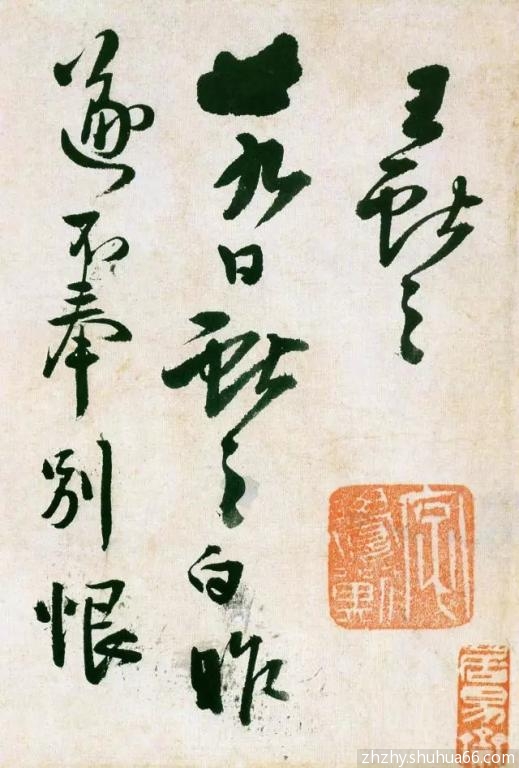 王獻之
廿九日獻之白昨
遂不奉别恨
zhzhy.shuhua66.com